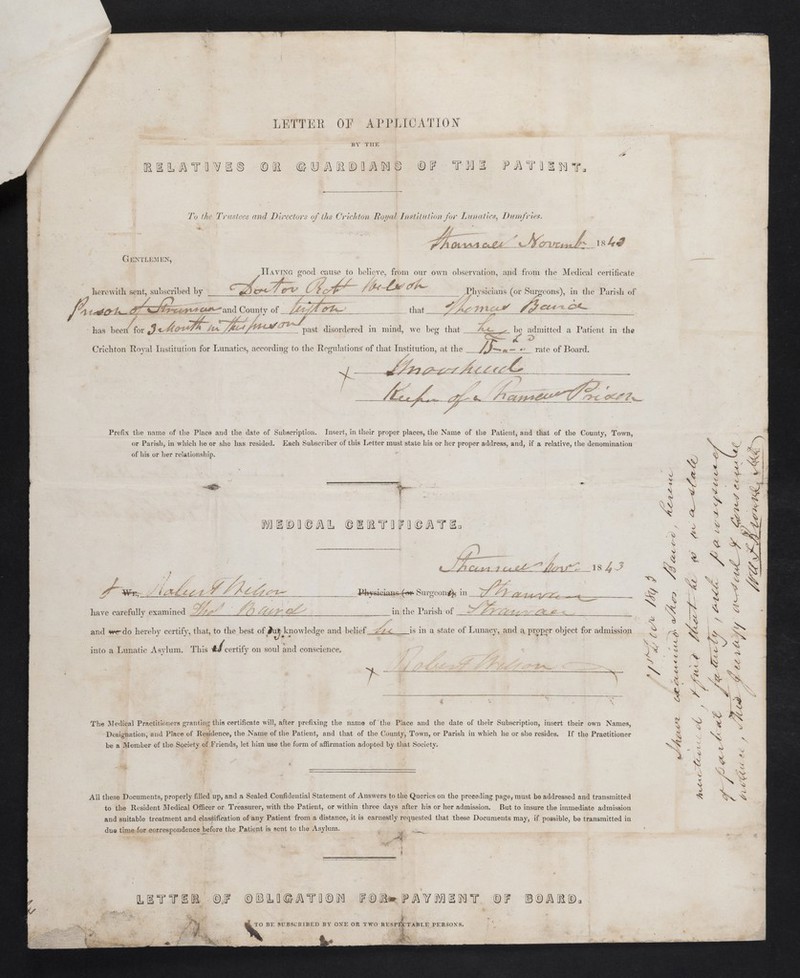 LETTER OF APPLICATION
BY THE
RELATIVES OR GUARDIANS OF THE PATIENT.
To the Trustees and Directors of the Crichton Royal Institution for Lunatics, Dumfries.
Stranraer Novemb. 1843
GENTLEMEN,
HAVING good cause to believe, from our own observation, and from the Medical certificate
herewith sent, subscribed by Doctor Robt Wilson Physicians (or Surgeons), in the Parish of
Prison of Stranraer and County of Wigton that Thomas Baird
has been for 3 Month in this prison past disordered in mind, we beg that he be admitted a Patient in the
Crichton Royal Institution for Lunatics, according to the Regulations of that Institution, at the £15 rate of Board.
x
Keeper of Stranraer Prison
Prefix the name of the Place and the date of Subscription. Insert, in their proper places, the Name of the Patient, and that of the County, Town,
or Parish, in which he or she has resided. Each Subscriber of this Letter must state his or her proper address, and, if a relative, the denomination
of his or her relationship.
MEDICAL CERTIFICATE.
Stranraer Novr 1843
I We, Robert Wilson Physicians (or Surgeons) in Stranraer
have carefully examined Thos Baird in the Parish of Stranraer
and we do hereby certify, that, to the best of my knowledge and belief he is in a state of Lunacy, and a proper object for admission
into a Lunatic Asylum. This I certify on soul and conscience.
x Robert Wilson
The Medical Practitioners granting this certificate will, after prefixing the name of the Place and the date of their Subscription, insert their own Names,
Designation, and Place of Residence, the Name of the Patient, and that of the County, Town, or Parish in which he or she resides. If the Practitioner
be a Member of the Society of Friends, let him use the form of affirmation adopted by that Society.
All these Documents, properly filled up, and a Sealed Confidential Statement of Answers to the Queries on the preceding page, must be addressed and transmitted
to the Resident Medical Officer or Treasurer, with the Patient, or within three days after his or her admission. But to insure the immediate admission
and suitable treatment and classification of any Patient from a distance, it is earnestly requested that these Documents may, if possible, be transmitted in
due time for correspondence before the Patient is sent to the Asylum.
LETTER OF OBLIGATION FOR PAYMENT OF BOARD.
TO BE SUBSCRIBED BY ONE OR TWO RESPECTABLE PERSONS.
1843
I have examined Thos Baird, herein
mentioned, & find that he is in a state
of partial fatuity, with paroxysms of
violence, This I certify on soul & conscience